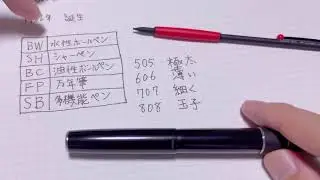 年 誕生
BW 水性ボールペン
SH シャーペン
BC 油性ボールペン
FP 万年筆
SB 多機能ペン
505 極太
606 薄い
707 細く
808 玉子